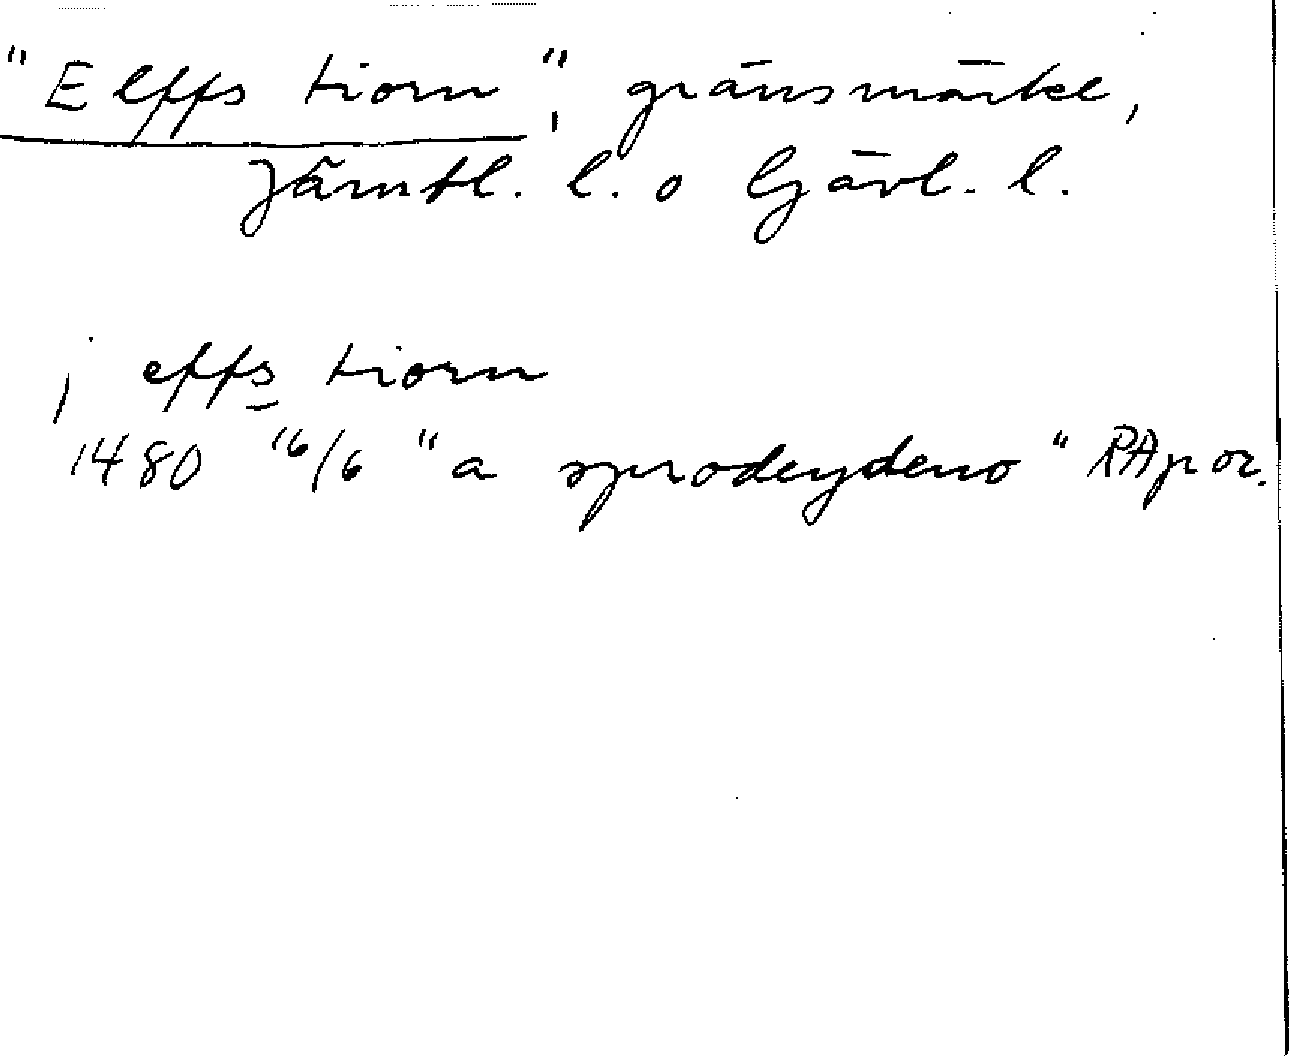 "Elffs tiorn", gränsmärke,
Jämtl. l. o Gävl. l.
j effs tiorn
1480 16/6 "a sprodeydeno" RAp or.